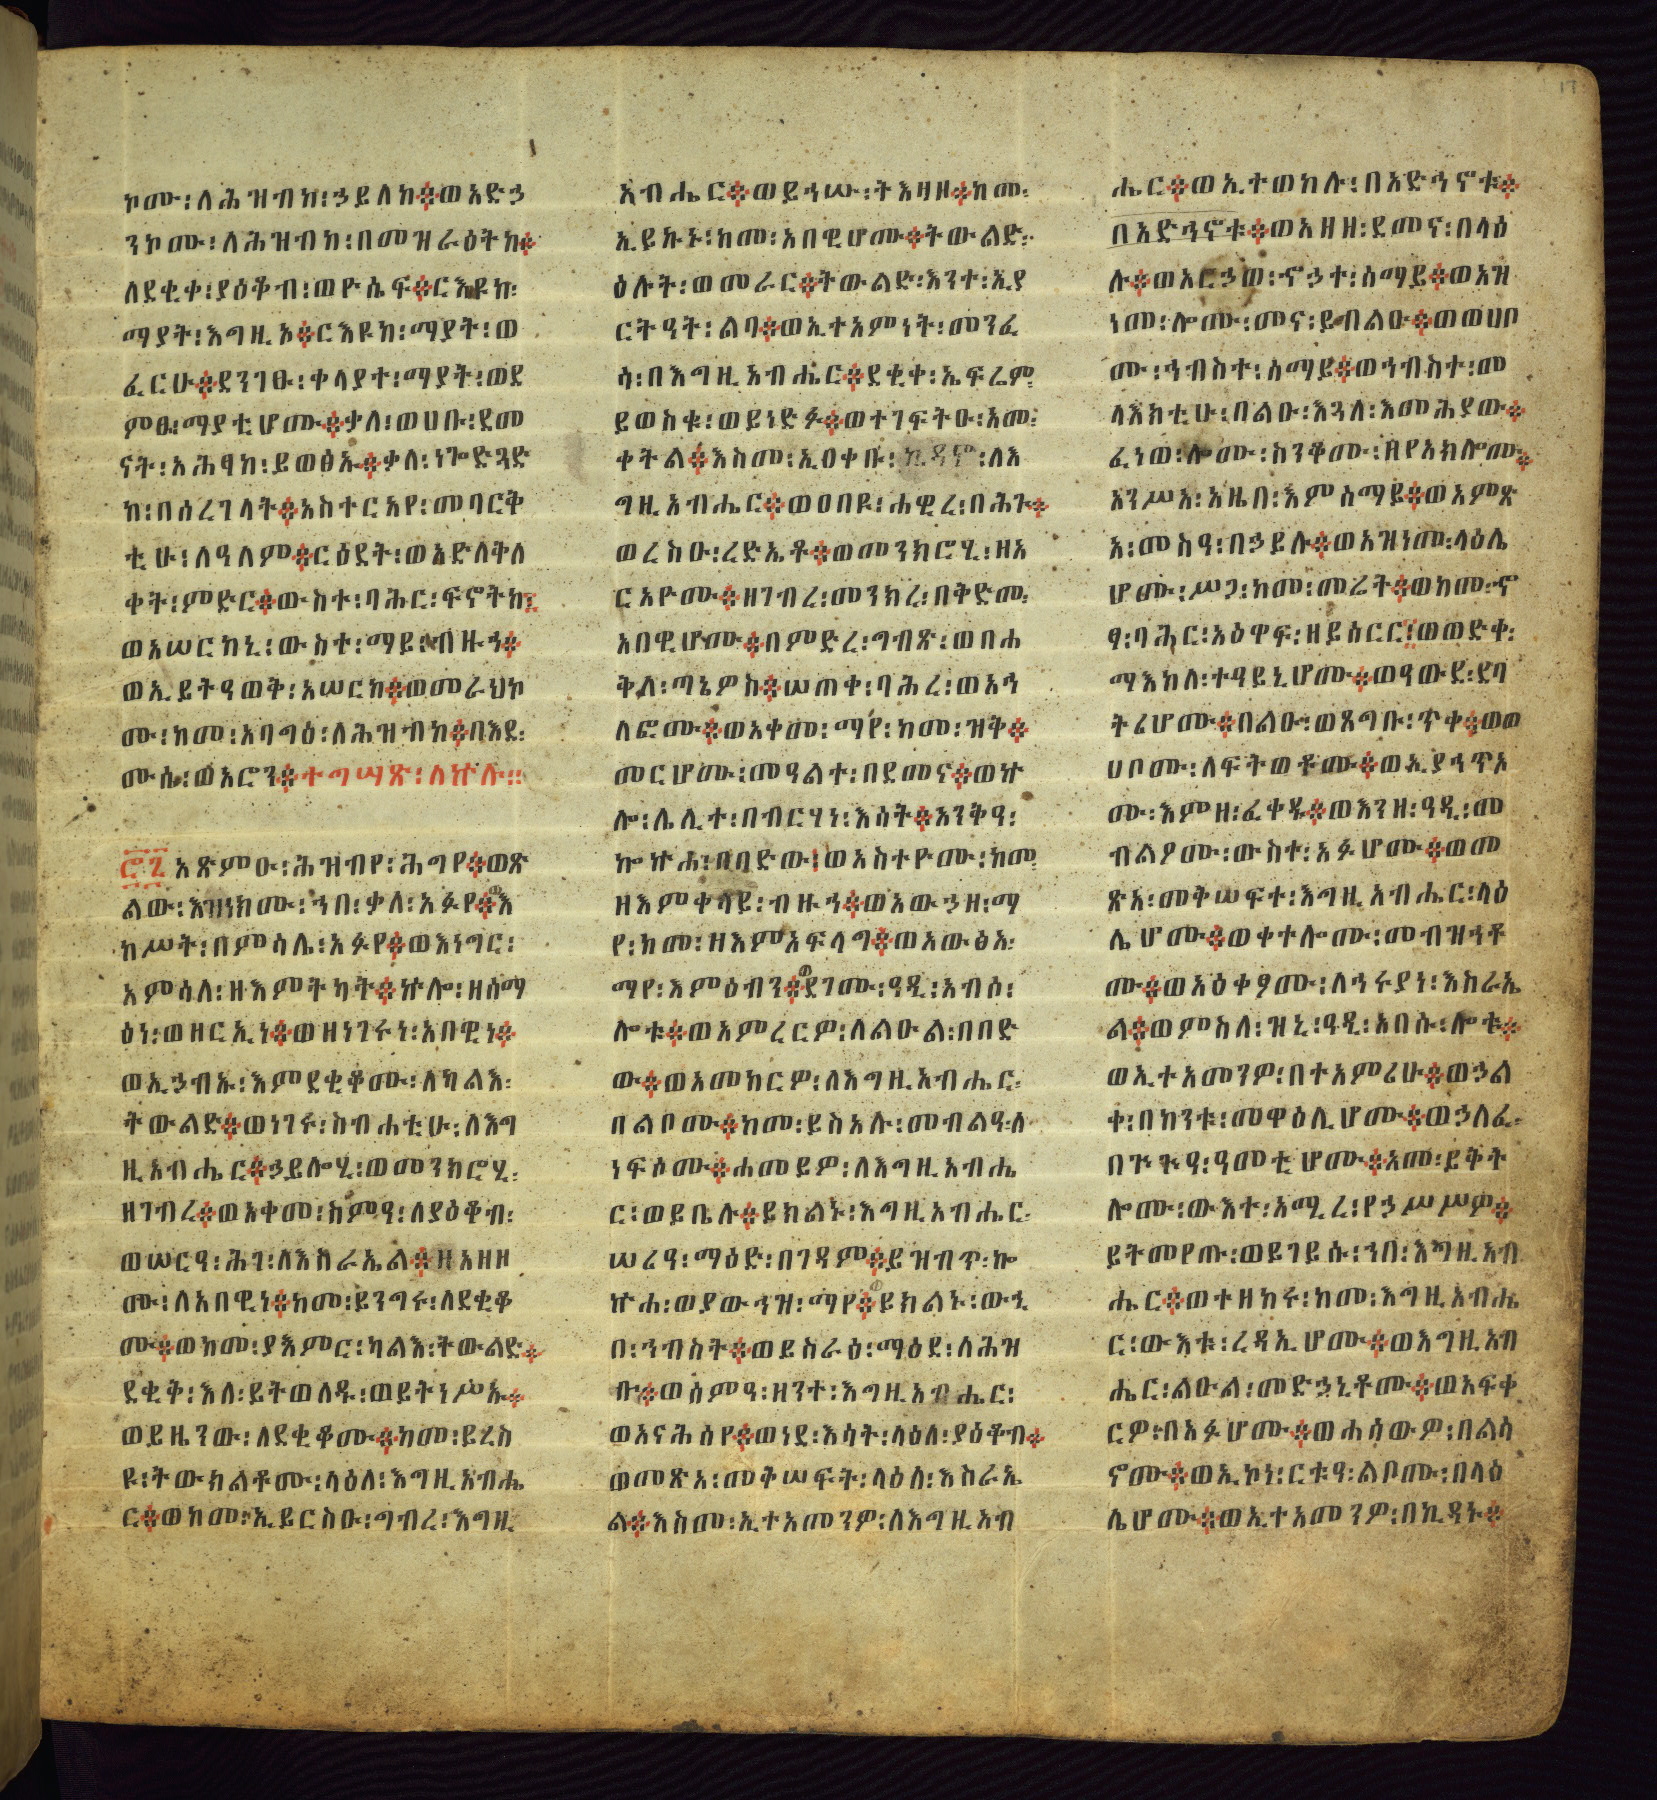 ኮሙ፡ለሕዝብከ፡ኃይለከ፨ወአድኃ
ንኮሙ፡ለሕዝብከ፡በመዝራዕትከ፨
ለደቂቀ፡ያዕቆብ፡ወዮሴፍ፨ርእዩከ፡
ማያት፡እግዚኦ፨ርእዩከ፡ማያት፡ወ
ፈርሁ፨ደንገፁ፡ቀላያተ፡ማያት፡ወደ
ምፁ፡ማያቲሆሙ፨ቃለ፡ወሀቡ፡ደመ
ናት፡አሕፃከ፡ይወፅኡ፨ቃለ፡ነጐድጓድ
ከ፡በሰረገላት፨አስተርአየ፡መባርቅ
ቲሁ፡ለዓለም፨ርዕደት፡ወአድለቅለ
ቀት፡ምድር፨ውስተ፡ባሕር፡ፍኖትከ፤
ወአሠርከኒ፡ውስተ፡ማይ፡ብዙኅ፨
ወኢይትዓወቅ፡አሠርከ፨ወመራህኮ
ሙ፡ከመ፡አባግዕ፡ለሕዝብከ፨በእደ፡
ሙሴ፡ወአሮን፨ተግሣጽ፡ለኵሉ።
፸፯ አጽምዑ፡ሕዝብየ፡ሕግየ፨ወጽ
ልው፡እዝነክሙ፡ኀበ፡ቃለ፡አፉየ፨እ
ከሥት፡በምሳሌ፡አፉየ፨ወእነግር፡
አምሳለ፡ዘእምትካት፨ኵሎ፡ዘሰማ
ዕነ፡ወዘርኢነ፨ወዘነገሩነ፡አበዊነ፨
ወኢኃብኡ፡እምደቂቆሙ፡ለካልእ፡
ትውልድ፨ወነገሩ፡ስብሐቲሁ፡ለእግ
ዚአብሔር፨ኃይሎሂ፡ወመንክሮሂ፡
ዘገብረ፨ወአቀመ፡ስምዓ፡ለያዕቆብ፡
ወሠርዓ፡ሕገ፡ለእስራኤል፨ዘአዘዞ
ሙ፡ለአበዊነ፨ከመ፡ይንግሩ፡ለደቂቆ
ሙ፨ወከመ፡ያእምር፡ካልእ፡ትውልድ፨
ደቂቅ፡እለ፡ይትወለዱ፡ወይትነሥኡ፨
ወይዜንው፡ለደቂቆሙ፨ከመ፡ይረስ
ዩ፡ትውክልቶሙ፡ላዕለ፡እግዚአብሔ
ር፨ወከመ፡ኢይርስዑ፡ግብረ፡እግዚ
አብሔር፨ወይኅሡ፡ትእዛዞ፨ከመ፡
ኢይኩኑ፡ከመ፡አበዊሆሙ፨ትውልድ፡
ዕሉት፡ወመራር፨ትውልድ፡እንተ፡ኢያ
ርትዓት፡ልባ፨ወኢተአምነት፡መንፈ
ሳ፡በእግዚአብሔር፨ደቂቀ፡ኤፍሬም፡
ይወስቁ፡ወይነድፉ፨ወተገፍትዑ፡አመ፡
ቀትል፨እስመ፡ኢዐቀቡ፡ኪዳኖ፡ለእ
ግዚአብሔር፨ወዐበዩ፡ሐዊረ፡በሕጉ፨
ወረስዑ፡ረድኤቶ፨ወመንክሮሂ፡ዘአ
ርአዮሙ፨ዘገብረ፡መንክረ፡በቅድመ፡
አበዊሆሙ፨በምድረ፡ግብጽ፡ወበሐ
ቅለ፡ጣኔዎስ፨ሠጠቀ፡ባሕረ፡ወአኅ
ለፎሙ፨ወአቀመ፡ማየ፡ከመ፡ዝቅ፨
መርሆሙ፡መዓልተ፡በደመና፨ወኵ
ሎ፡ሌሊተ፡በብርሃነ፡እሳት፨አንቅዓ፡
ኰኵሐ፡በበድው፡ወአስተዮሙ፡ከመ፡
ዘእምቀላይ፡ብዙኅ፨ወአውኃዘ፡ማ
የ፡ከመ፡ዘእምአፍላግ፨ወአውፅአ፡
ማየ፡እምዕብን፨ደገሙ፡ዓዲ፡አብሶ፡
ሎቱ፨ወአምረርዎ፡ለልዑል፡በበድ
ው፨ወአመከርዎ፡ለእግዚአብሔር፡
በልቦሙ፨ከመ፡ይስአሉ፡መብልዓ፡ለ
ነፍሶሙ፨ሐመይዎ፡ለእግዚአብሔ
ር፡ወይቤሉ፨ይክልኑ፡እግዚአብሔር፡
ሠሪዓ፡ማዕድ፡በገዳም፨ይዝብጥ፡ኰ
ኵሐ፡ወያውኅዝ፡ማየ፨ይክልኑ፡ውኂ
በ፡ኅብስት፨ወይስራዕ፡ማዕደ፡ለሕዝ
ቡ፨ወሰምዓ፡ዘንተ፡እግዚአብሔር፡
ወአናሕሰየ፨ወነደ፡እሳት፡ላዕለ፡ያዕቆብ፨
ወመጽአ፡መቅሠፍት፡ላዕለ፡እስራኤ
ል፨እስመ፡ኢተአመንዎ፡ለእግዚአብ
ሔር፨ወኢተወከሉ፡በአድኅኖቱ፨
በአድኅኖቱ፨ወአዘዘ፡ደመና፡በላዕ
ሉ፨ወአርኃወ፡ኆኃተ፡ሰማይ፨ወአዝ
ነመ፡ሎሙ፡መና፡ይብልዑ፨ወወሀቦ
ሙ፡ኅብስተ፡ሰማይ፨ወኅብስተ፡መ
ላእክቲሁ፡በልዑ፡እጓለ፡እመሕያው፨
ፈነወ፡ሎሙ፡ስንቆሙ፡ዘየአክሎሙ፨
አንሥአ፡አዜበ፡እምሰማይ፨ወአምጽ
አ፡መስዓ፡በኃይሉ፨ወአዝነመ፡ላዕሌ
ሆሙ፡ሥጋ፡ከመ፡መሬት፨ወከመ፡ኆ
ፃ፡ባሕር፡አዕዋፍ፡ዘይሰርር፤ወወድቀ፡
ማእከለ፡ተዓይኒሆሙ፨ወዓውደ፡ደባ
ትሪሆሙ፨በልዑ፡ወጸግቡ፡ጥቀ፨ወወ
ሀቦሙ፡ለፍትወቶሙ፨ወኢያኅጥአ
ሙ፡እምዘ፡ፈቀዱ፨ወእንዘ፡ዓዲ፡መ
ብልዖሙ፡ውስተ፡አፉሆሙ፨ወመ
ጽአ፡መቅሠፍተ፡እግዚአብሔር፡ላዕ
ሌሆሙ፨ወቀተሎሙ፡መብዝኅቶ
ሙ፨ወአዕቀፆሙ፡ለኅሩያነ፡እስራኤ
ል፨ወምስለ፡ዝኒ፡ዓዲ፡አበሱ፡ሎቱ፨
ወኢተአመንዎ፡በተአምሪሁ፨ወኃል
ቀ፡በከንቱ፡መዋዕሊሆሙ፨ወኃለፈ፡
በጕጕዓ፡ዓመቲሆሙ፨አመ፡ይቅት
ሎሙ፡ውእተ፡አሚረ፡የኃሥሥዎ፨
ይትመየጡ፡ወይገይሱ፡ኀበ፡እግዚአብ
ሔር፨ወተዘከሩ፡ከመ፡እግዚአብሔ
ር፡ውእቱ፡ረዳኢሆሙ፨ወእግዚአብ
ሔር፡ልዑል፡መድኃኒቶሙ፨ወአፍቀ
ርዎ፡በአፉሆሙ፨ወሐሰውዎ፡በልሳ
ኖሙ፨ወኢኮነ፡ርቱዓ፡ልቦሙ፡በላዕ
ሌሆሙ፨ወኢተአመንዎ፡በኪዳኑ፨